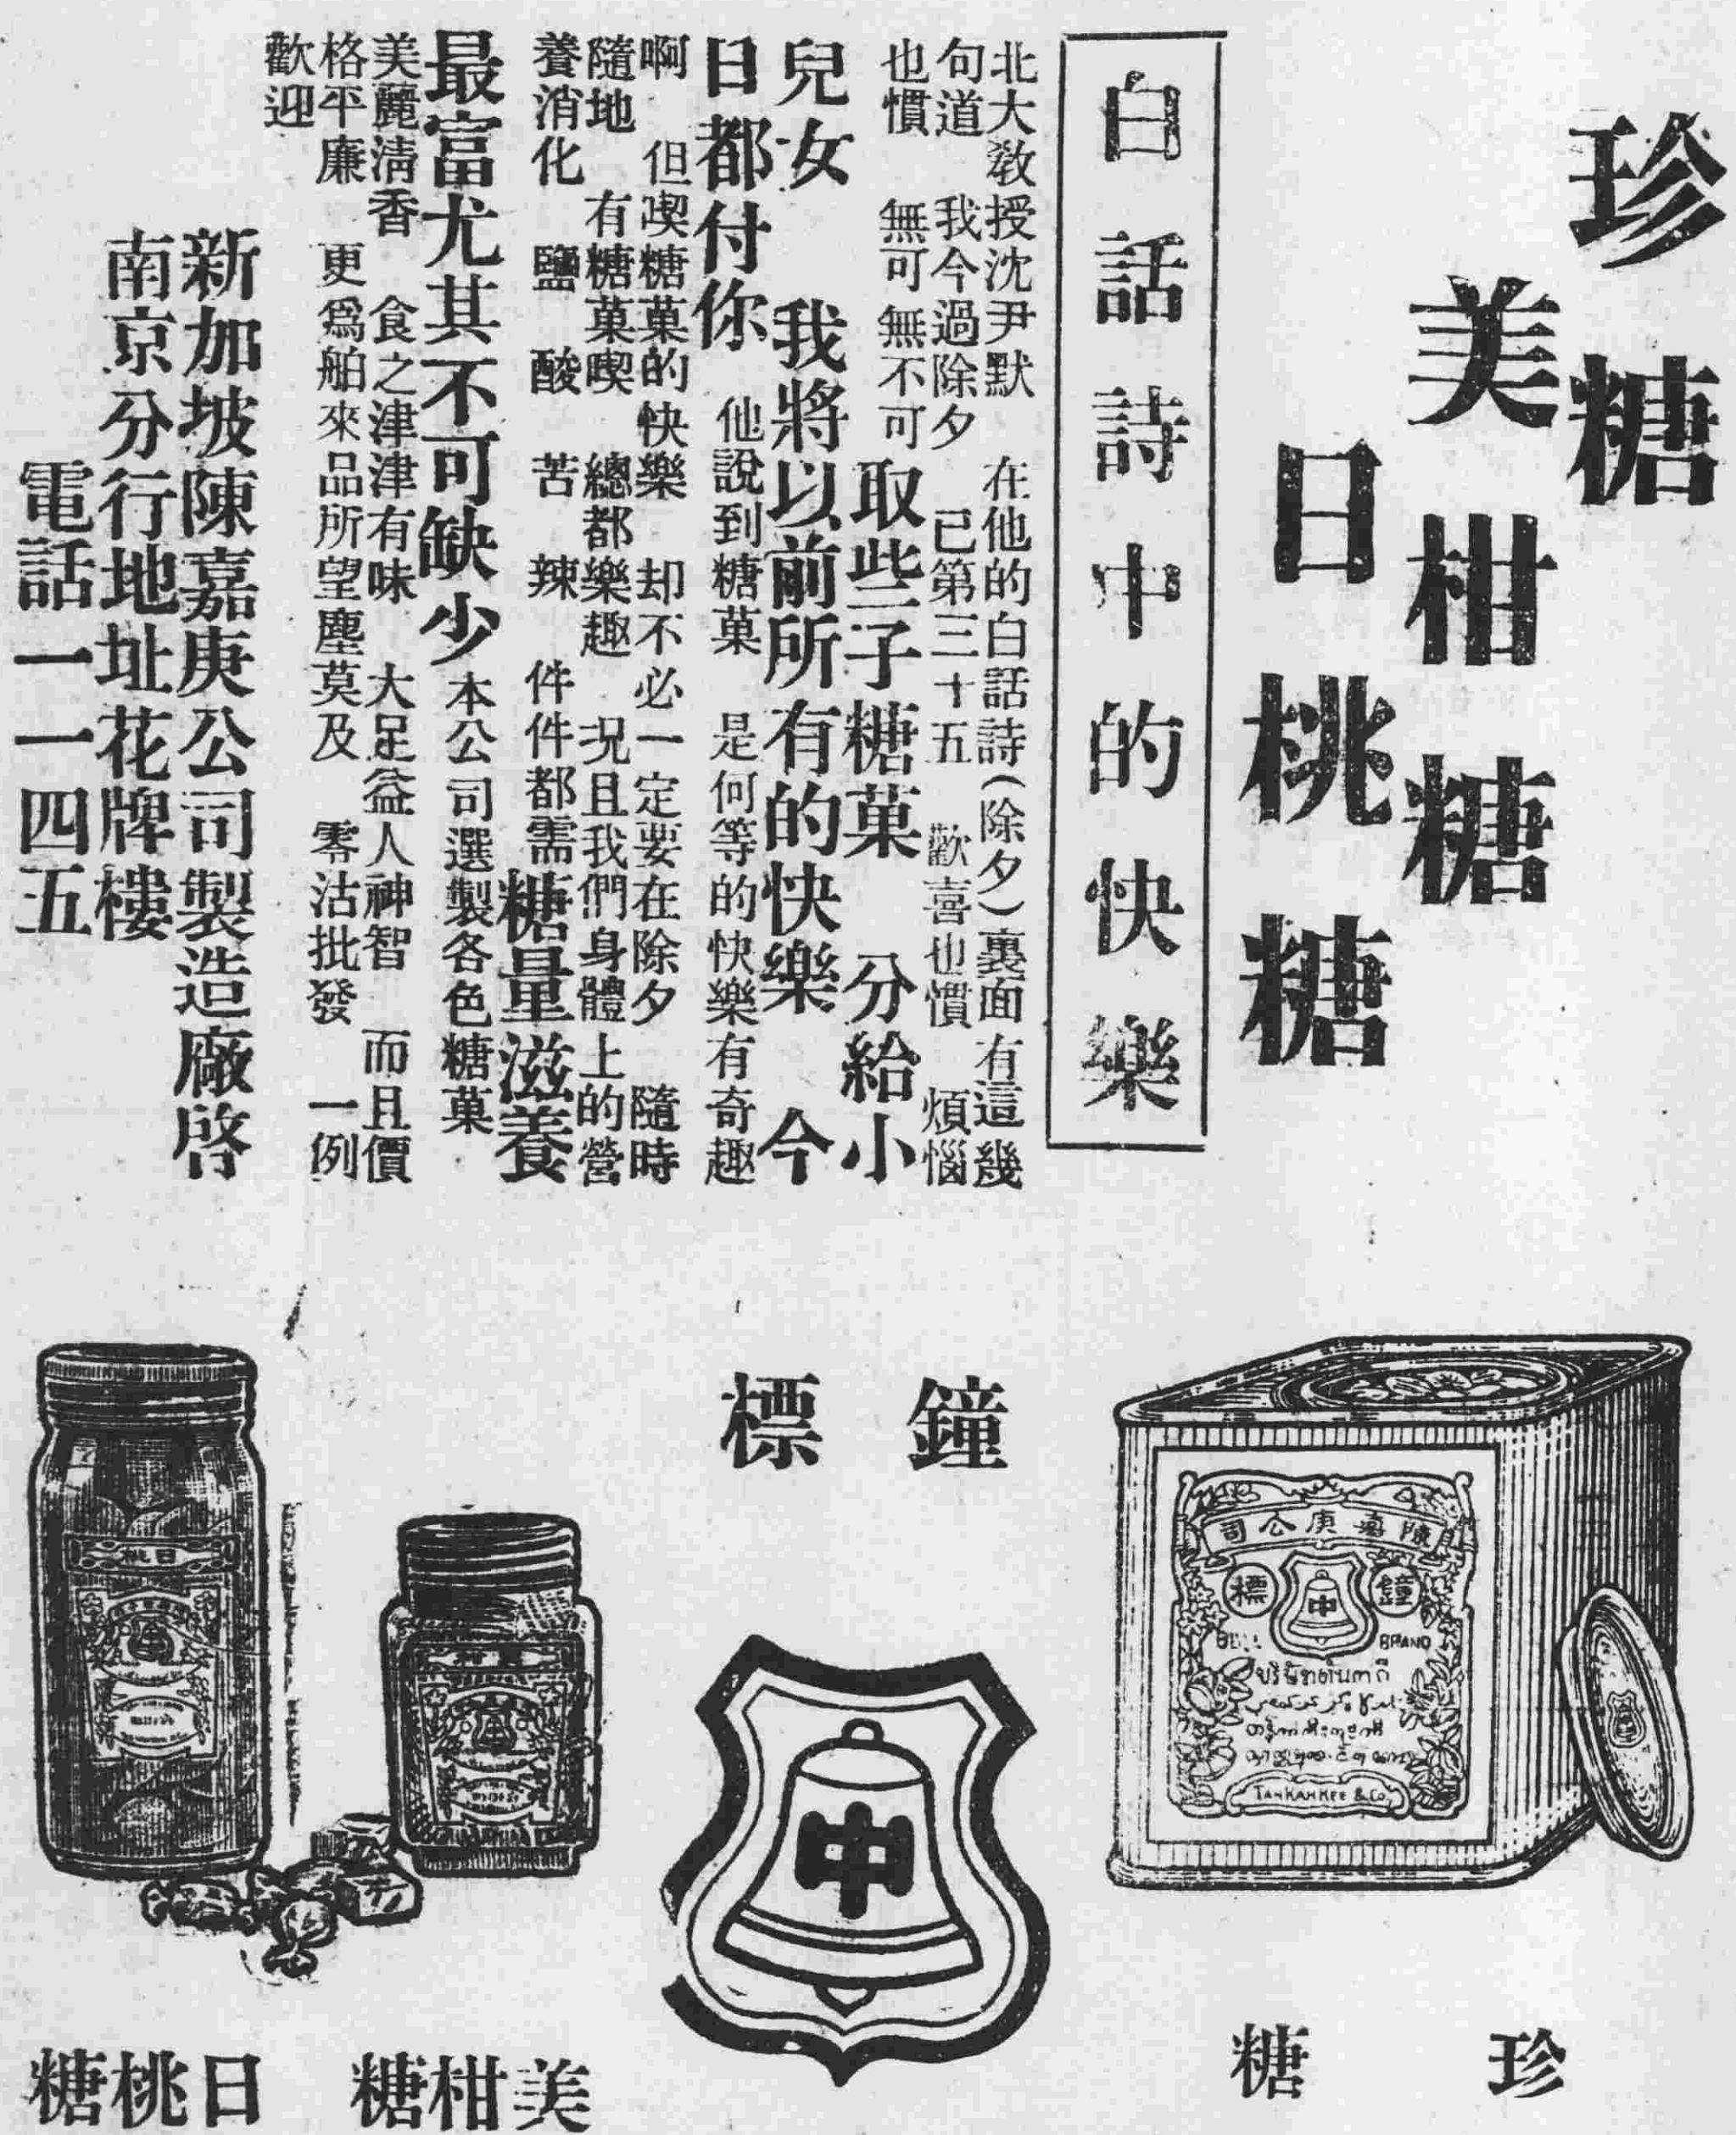 珍糖
美柑糖
日桃糖
白話詩中的快樂
北大教授沈尹默　在他的白話詩（除夕）裏面　有這幾
句道　我今過除夕　已第三十五　歡喜也慣　煩惱
也慣　無可無不可　取些子糖菓　分給小
兒女　我將以前所有的快樂　今
日都付你　他說到糖菓　是何等的快樂有奇趣
啊　但喫糖菓的快樂　却不必一定要在除夕　隨時
隨地　有糖菓喫　總都樂趣　況且我們身體上的營
養消化　鹽　酸　苦　辣　件件都需糖量滋養
最富尤其不可缺少　本公司選製各色糖菓
美麗清香　食之津津有味　大足益人神智　而且價
格平廉　更爲舶來品所望塵莫及　零沽批發　一例
歡迎
新加坡陳嘉庚公司製造廠啓
南京分行地址花牌樓
電話一一四五
鐘標
陳嘉庚公司
鐘標
中
BELL BRAND
TAN KAH KEE & Co.
日桃
中
珍糖
美柑糖
日桃糖